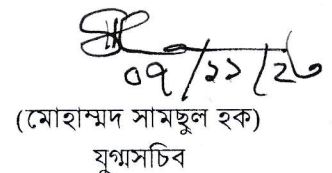 ০৭/১১/২৩
(মোহাম্মদ সামছুল হক)
যুগ্মসচিব